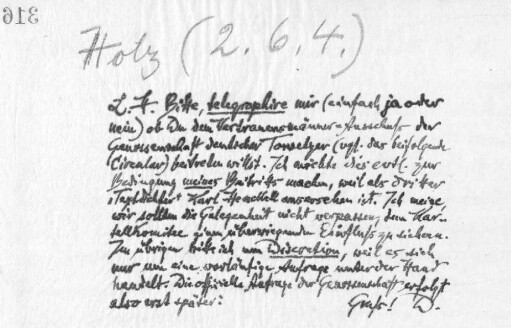 316
Holz (2.6.4.)
L. H. Bitte, telegraphire mir (einfach ja oder
nein) ob Du dem Vertrauensmänner-Ausschuß der
Genossenschaft deutscher Tonsetzer (vgl. das beifolgende
Circular) beitreten willst. Ich möchte dies evtl. zur
Bedingung meines Beitritts machen, weil als dritter
„Textdichter“ Karl Henckell ausersehen ist. Ich meine,
wir sollten die Gelegenheit nicht verpassen, dem Kar-
tellkomitee einen überwiegenden Einfluß zu sichern.
Im übrigen bitte ich um Discretion, weil es sich
nur um eine vorläufige Anfrage unter der Hand
handelt. Die officielle Anfrage der Genossenschaft erfolgt
also erst später. Gruß! D.